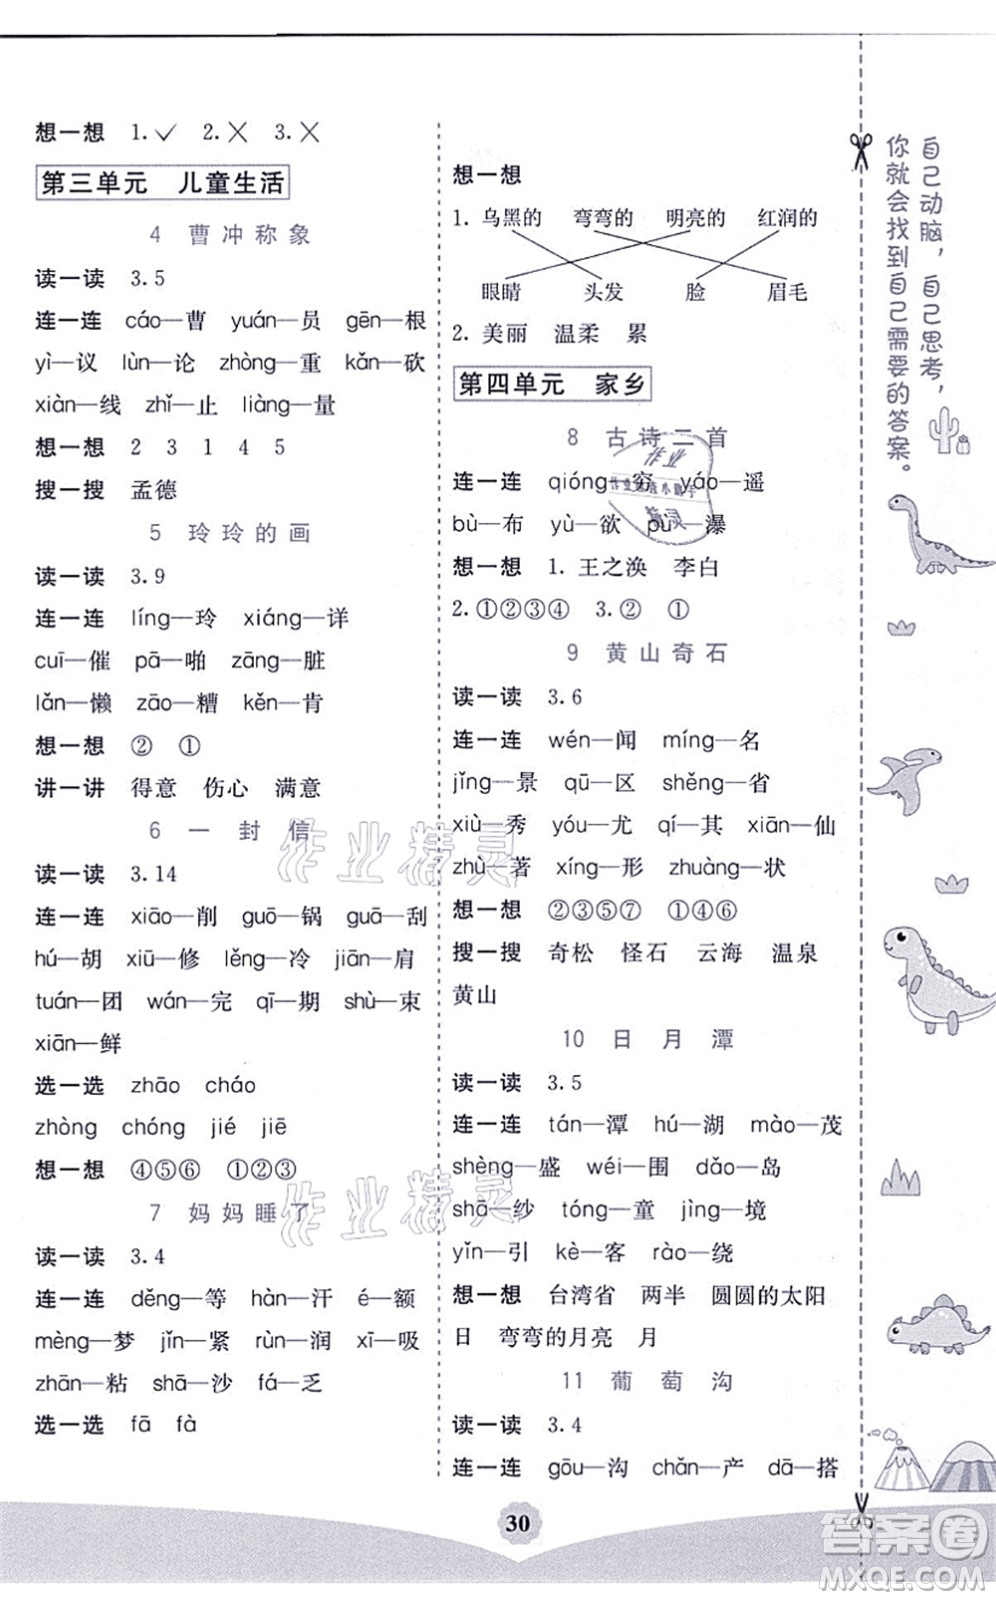 想一想 1.✓ 2.✗ 3.✗
第三单元 儿童生活
4 曹冲称象
读一读 3.5
连一连 cáo—曹 yuán—员 gēn—根
yì—议 lùn—论 zhòng—重 kǎn—砍
xiàn—线 zhǐ—止 liàng—量
想一想 2 3 1 4 5
搜一搜 孟德
5 玲玲的画
读一读 3.9
连一连 líng—玲 xiáng—详
cuī—催 pā—啪 zāng—脏
lǎn—懒 zāo—糟 kěn—肯
想一想 ② ①
讲一讲 得意 伤心 满意
6 一封信
读一读 3.14
连一连 xiāo—削 guō—锅 guā—刮
hú—胡 xiū—修 lěng—冷 jiān—肩
tuán—团 wán—完 qī—期 shù—束
xiān—鲜
选一选 zhāo cháo
zhòng chóng jié jiē
想一想 ④⑤⑥ ①②③
7 妈妈睡了
读一读 3.4
连一连 děng—等 hàn—汗 é—额
mèng—梦 jǐn—紧 rùn—润 xī—吸
zhān—粘 shā—沙 fá—乏
选一选 fā fà
想一想
1. 乌黑的 弯弯的 明亮的 红润的
眼睛 头发 脸 眉毛
2. 美丽 温柔 累
第四单元 家乡
8 古诗二首
连一连 qióng—穷 yáo—遥
bù—布 yù—欲 pù—瀑
想一想 1. 王之涣 李白
2.①②③④ 3.② ①
9 黄山奇石
读一读 3.6
连一连 wén—闻 míng—名
jǐng—景 qū—区 shěng—省
xiù—秀 yóu—尤 qí—其 xiān—仙
zhù—著 xíng—形 zhuàng—状
想一想 ②③⑤⑦ ①④⑥
搜一搜 奇松 怪石 云海 温泉
黄山
10 日月潭
读一读 3.5
连一连 tán—潭 hú—湖 mào—茂
shèng—盛 wéi—围 dǎo—岛
shā—纱 tóng—童 jìng—境
yǐn—引 kè—客 rào—绕
想一想 台湾省 两半 圆圆的太阳
日 弯弯的月亮 月
11 葡萄沟
读一读 3.4
连一连 gōu—沟 chǎn—产 dā—搭
自己动脑，自己思考，
你就会找到自己需要的答案。
30
作业精灵
作业精灵
答案圈
MXQE.COM